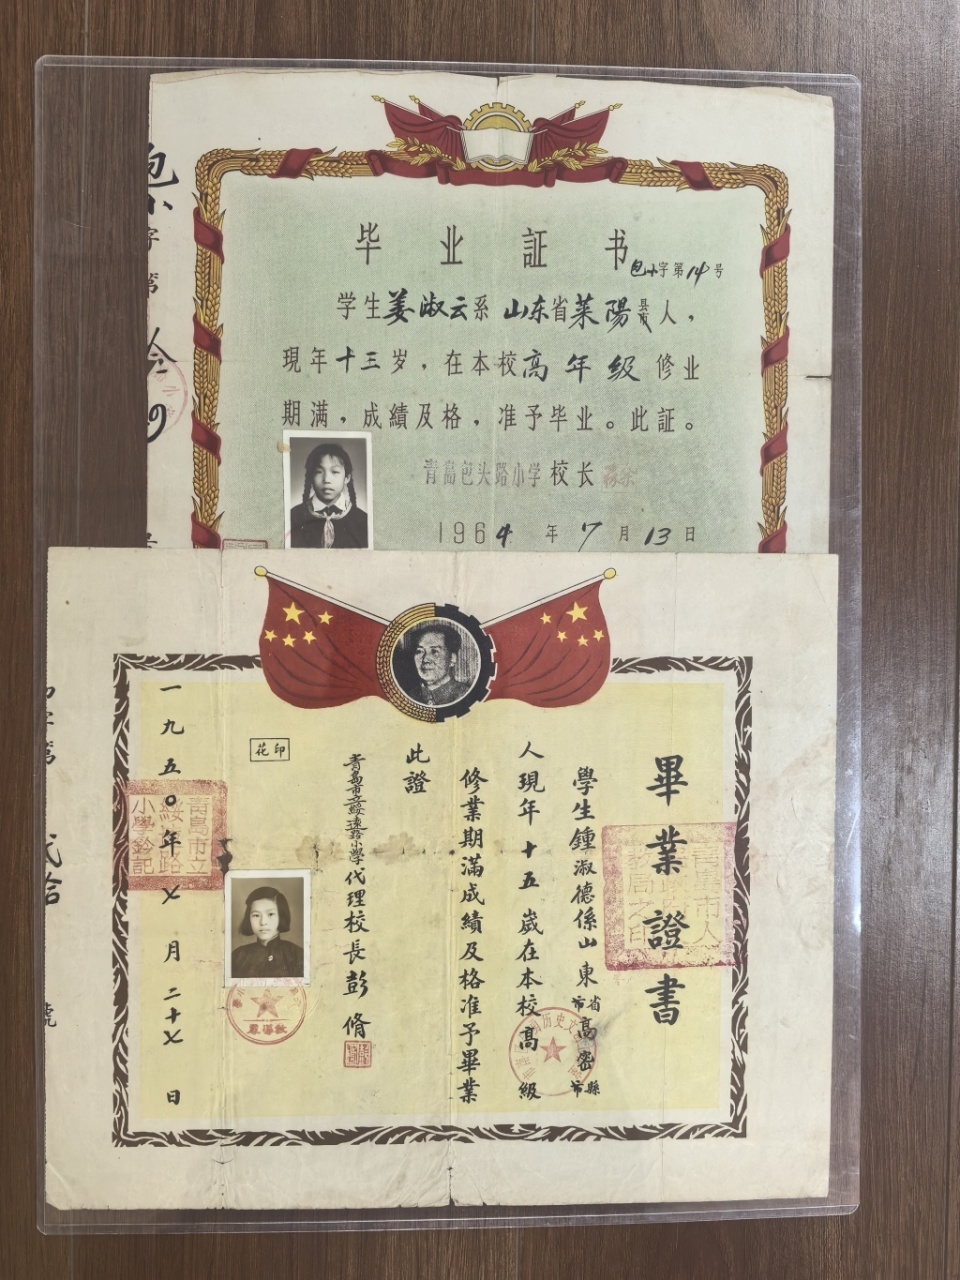 毕业証书
包小字第14号
学生姜淑云系山东省莱陽县市人，
現年十三岁，在本校高年级修业
期满，成績及格，准予毕业。此証。
青島包头路小学校长
1964年7月13日
包小字第
畢業證書
學生鍾淑德係山東省市高密縣市
人現年十五歲在本校高級
修業期滿成績及格准予畢業
此證
青島市立綏遠路小學代理校長彭脩
印花
一九五〇年七月二十七日
青島市立綏遠路小學鈐記